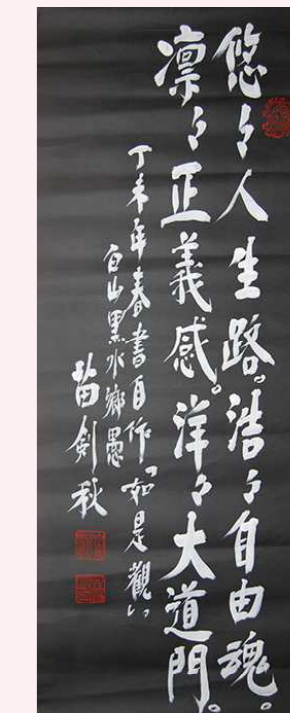 悠々人生路。浩々自由魂。
凛々正義感。洋々大道門。
丁未年春書自作「如是觀」
白山黒水鄉愚
苗剣秋